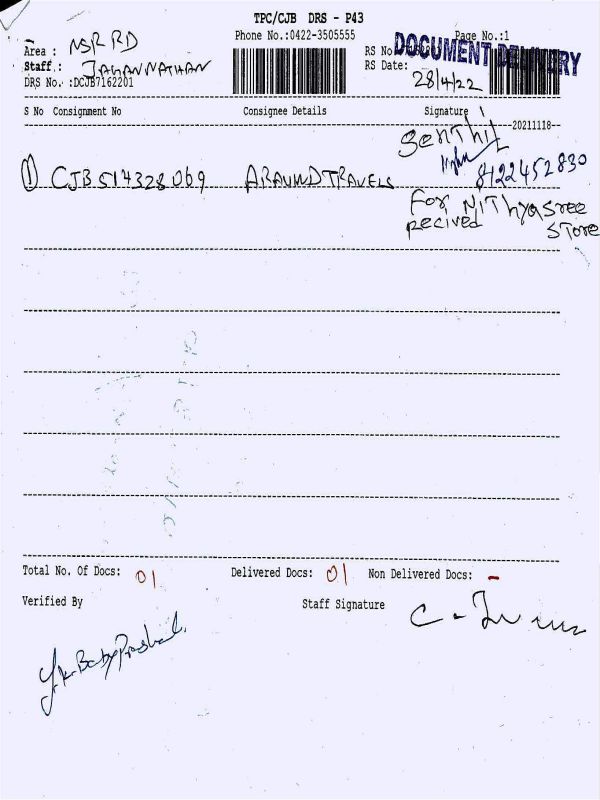 TPC/CJB DRS - P43
Area : NSR RD Phone No.:0422-3505555 Page No.:1
Staff.: JAGANNATHAN RS No
DRS No. :DCJB7162201 RS Date: 28/4/22
DOCUMENT DELIVERY
S No Consignment No Consignee Details Signature
20211118
Senthil
① CJB514328069 ARAVIND TRAVELS 8122452830
For NiThyasree
recived STore
Total No. Of Docs: 01 Delivered Docs: 01 Non Delivered Docs: -
Verified By Staff Signature